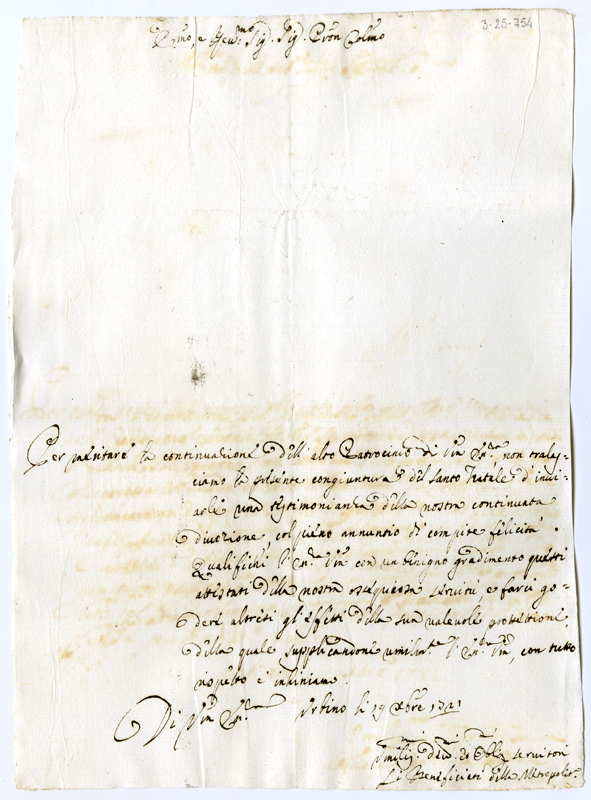 3-25-754
Rmo, e Revmo Sig. Sig. Pron Colmo
Per meritare la continuazione dell'alto Patrocinio di Vra Emza non trala-
sciamo la presente congiuntura del Santo Natale d'invi-
arle una testimonianza della nostra continuata
divozione, col pieno annuntio di compite felicità.
Qualifichi l'Emza Vra con un benigno gradimento questi
attestati della nostra ossequiosa servitù e farci go-
dere altresì gli effetti della sua valevole protettione,
della quale supplicandone umilmte l'Emza Vra, con tutto
rispetto c'inchiniamo.
Di Vra Emza Urbino li 19 Xbre 1721
Umilij Devmi ed Obligmi Servitori
Li Beneficiati della Metropolna